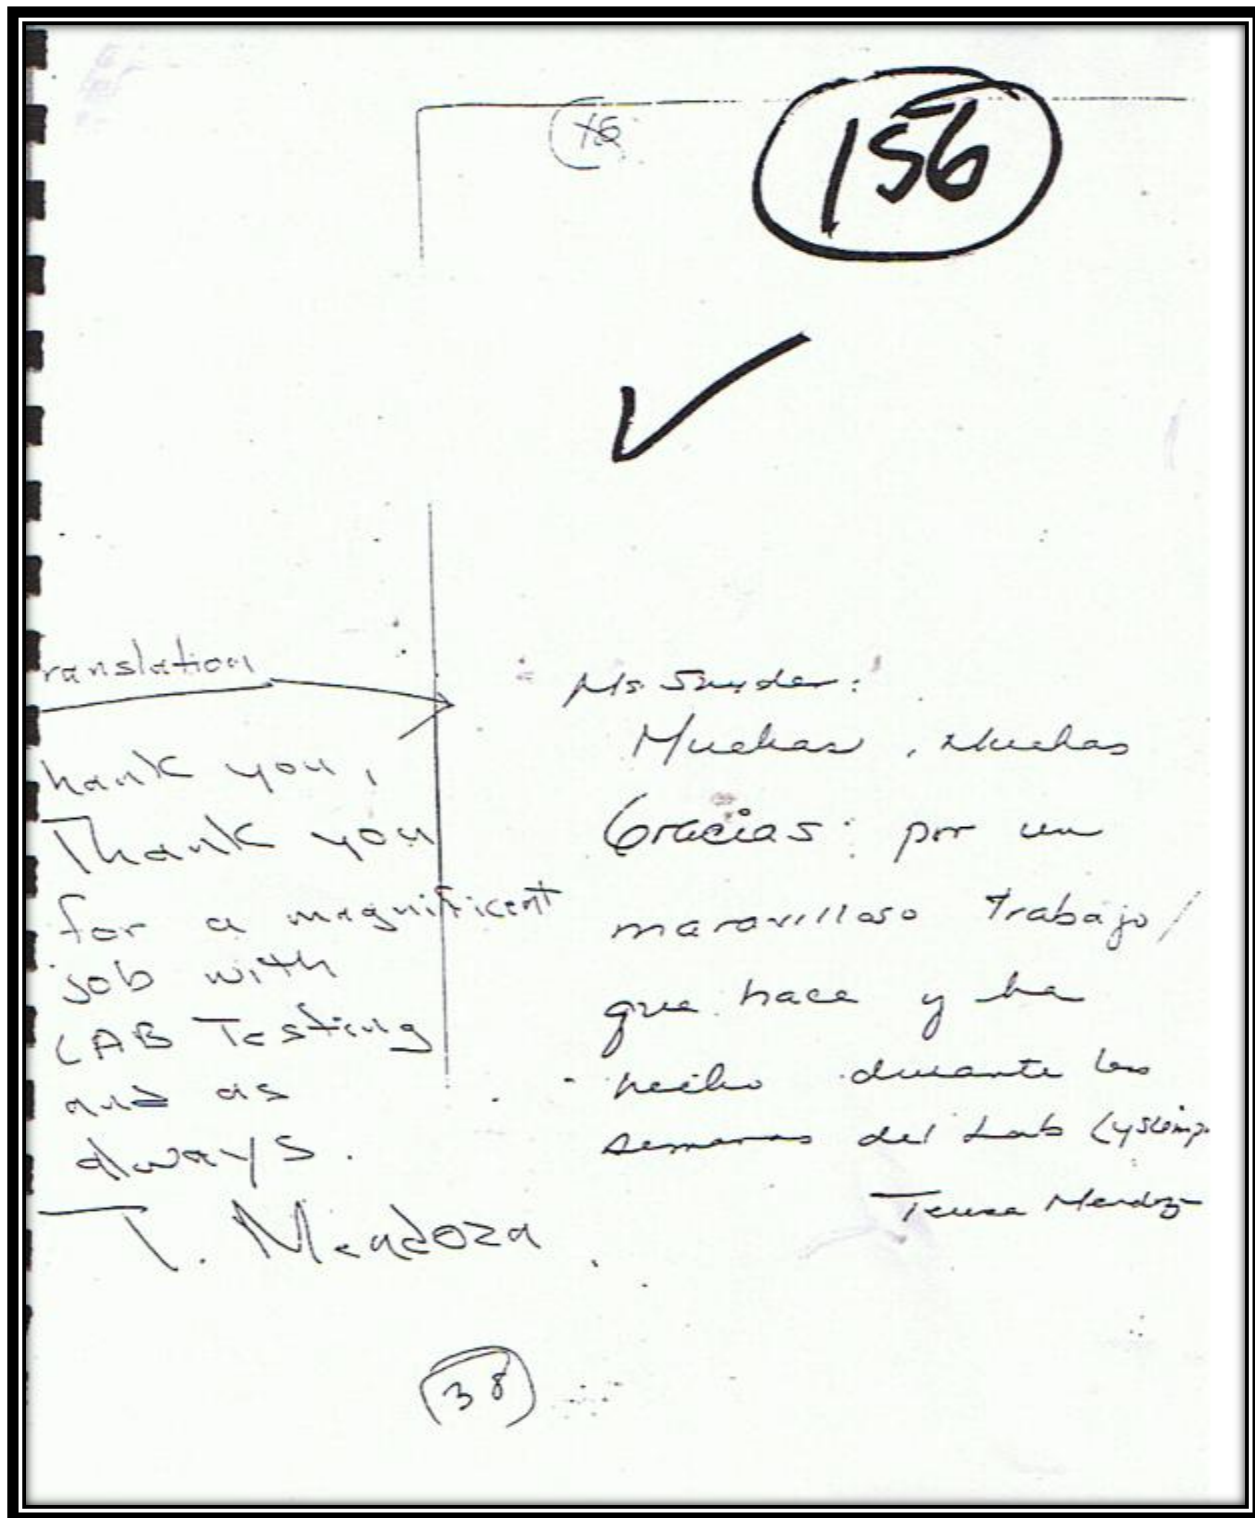 156
ranslation
hank you,
Thank you
for a magnificent
job with
LAB Testing
and as
always.
T. Mendoza
Ms. Snyder:
Muchas, Muchas
Gracias: por un
maravilloso trabajo/
que hace y ha
hecho durante las
semanas del Lab (y siemp
Teresa Mendoza
38